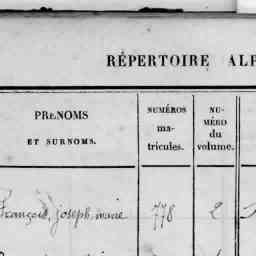 RÉPERTOIRE ALP
PRENOMS
ET SURNOMS.
NUMÉROS
ma-
tricules.
NU-
MÉRO
du
volume.
François, joseph, marie 778 2